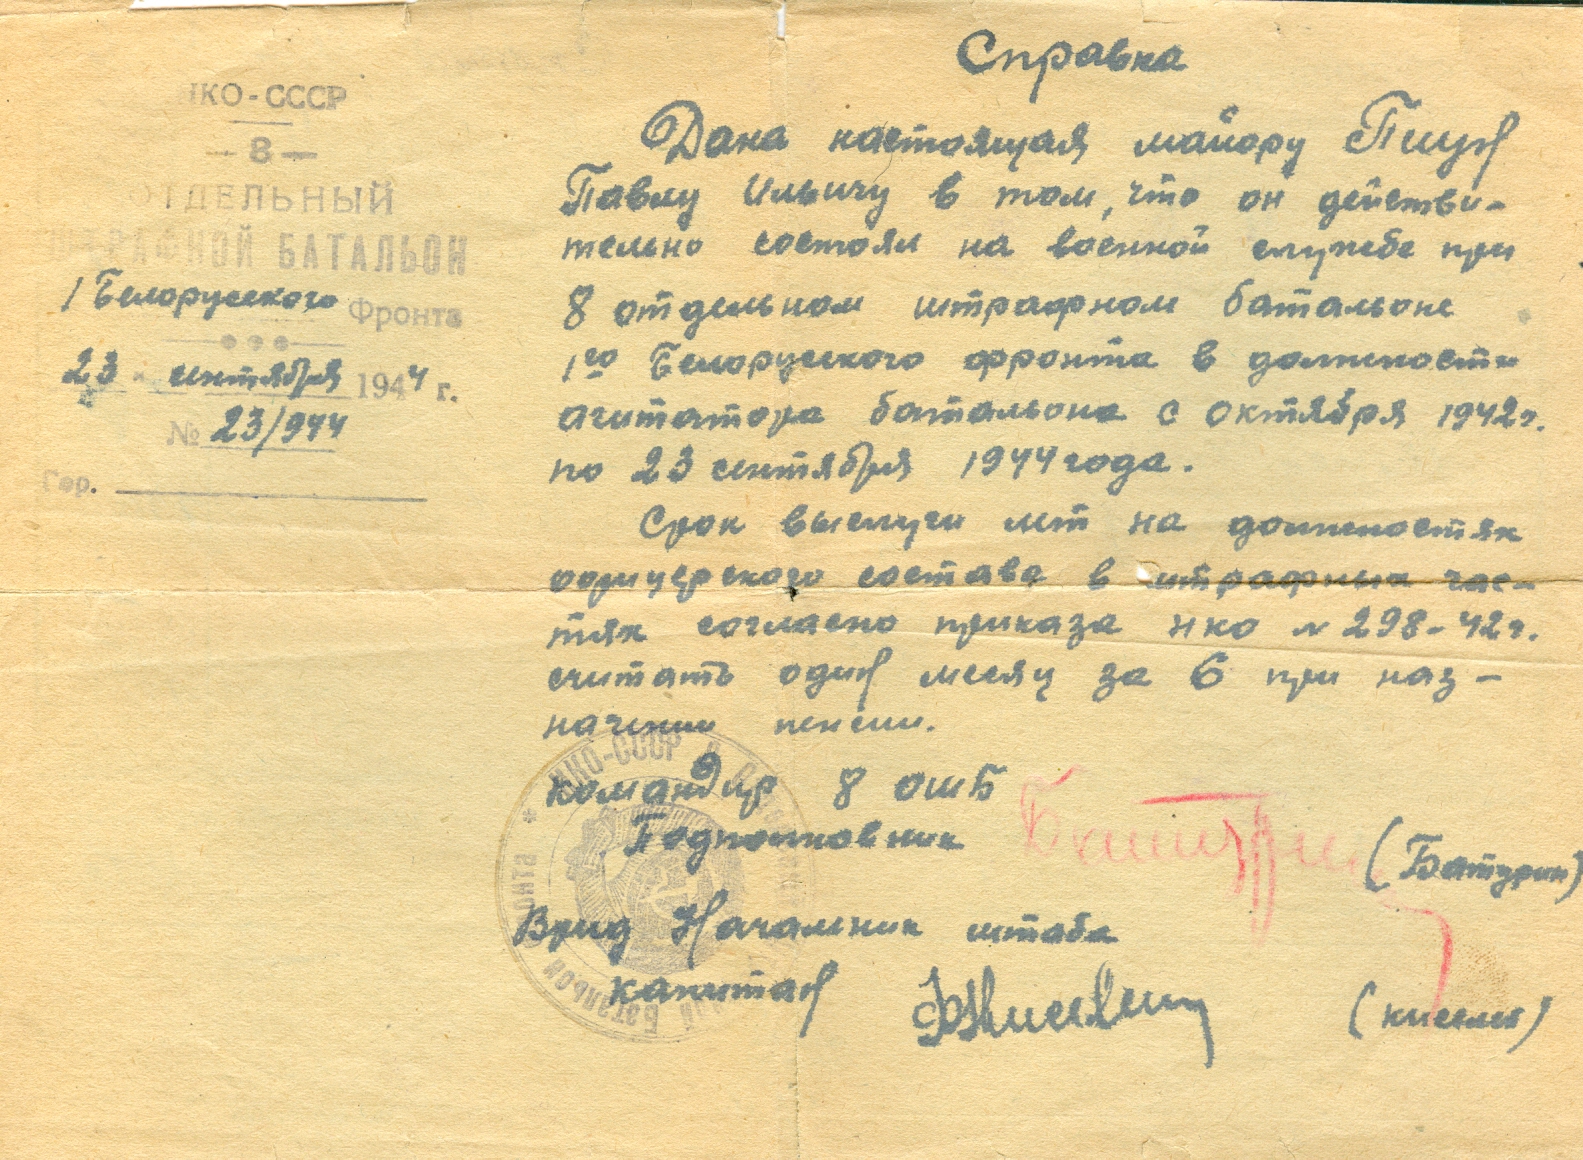 НКО-СССР
— 8 —
ОТДЕЛЬНЫЙ
ШТРАФНОЙ БАТАЛЬОН
1 Белорусского Фронта
23 сентября 1944 г.
№ 23/944
Гор.
Справка
Дана настоящая майору
Павлу Ильичу в том, что он действи-
тельно состоял на военной службе при
8 отдельном штрафном батальоне
1го Белорусского фронта в должности
агитатора батальона с октября 1942г.
по 23 сентября 1944 года.
Срок выслуги лет на должностях
офицерского состава в штрафных час-
тях согласно приказа НКО №298-42г.
считать один месяц за 6 при наз-
начении пенсии.
Командир 8 ОШБ
Подполковник (Батурин)
Врид Начальник штаба
капитан (Киселев)
НКО-СССР
Батальон